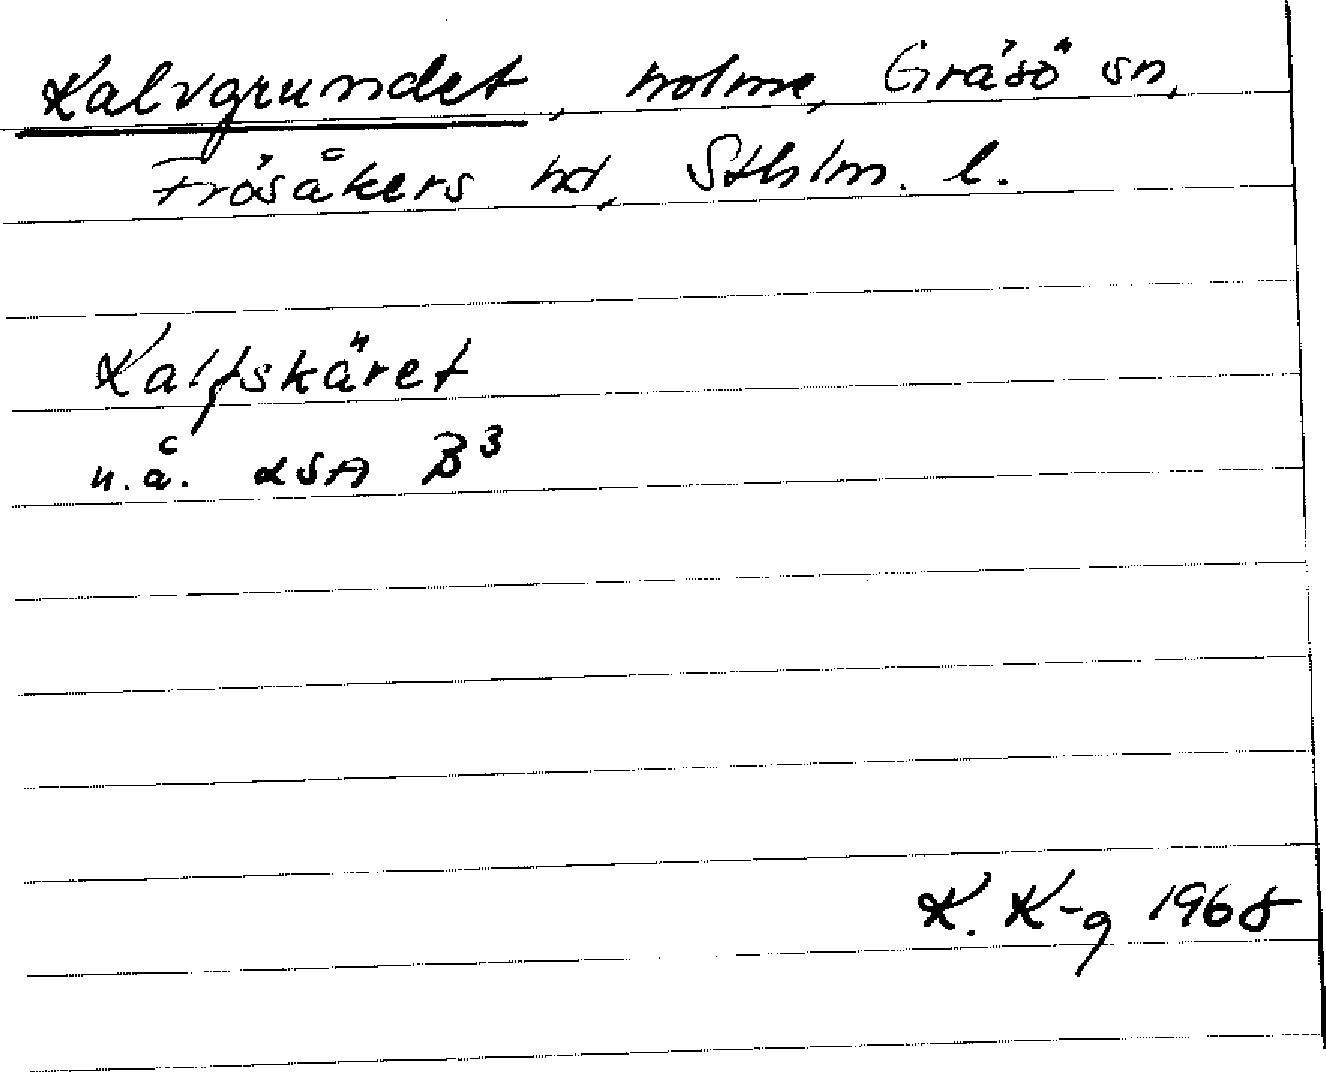 Kalvgrundet, holme, Gräsö sn,
Frösåkers hd, Sthlm. l.
Kalfskäret
u.å. LSA B³
K. K-g 1968